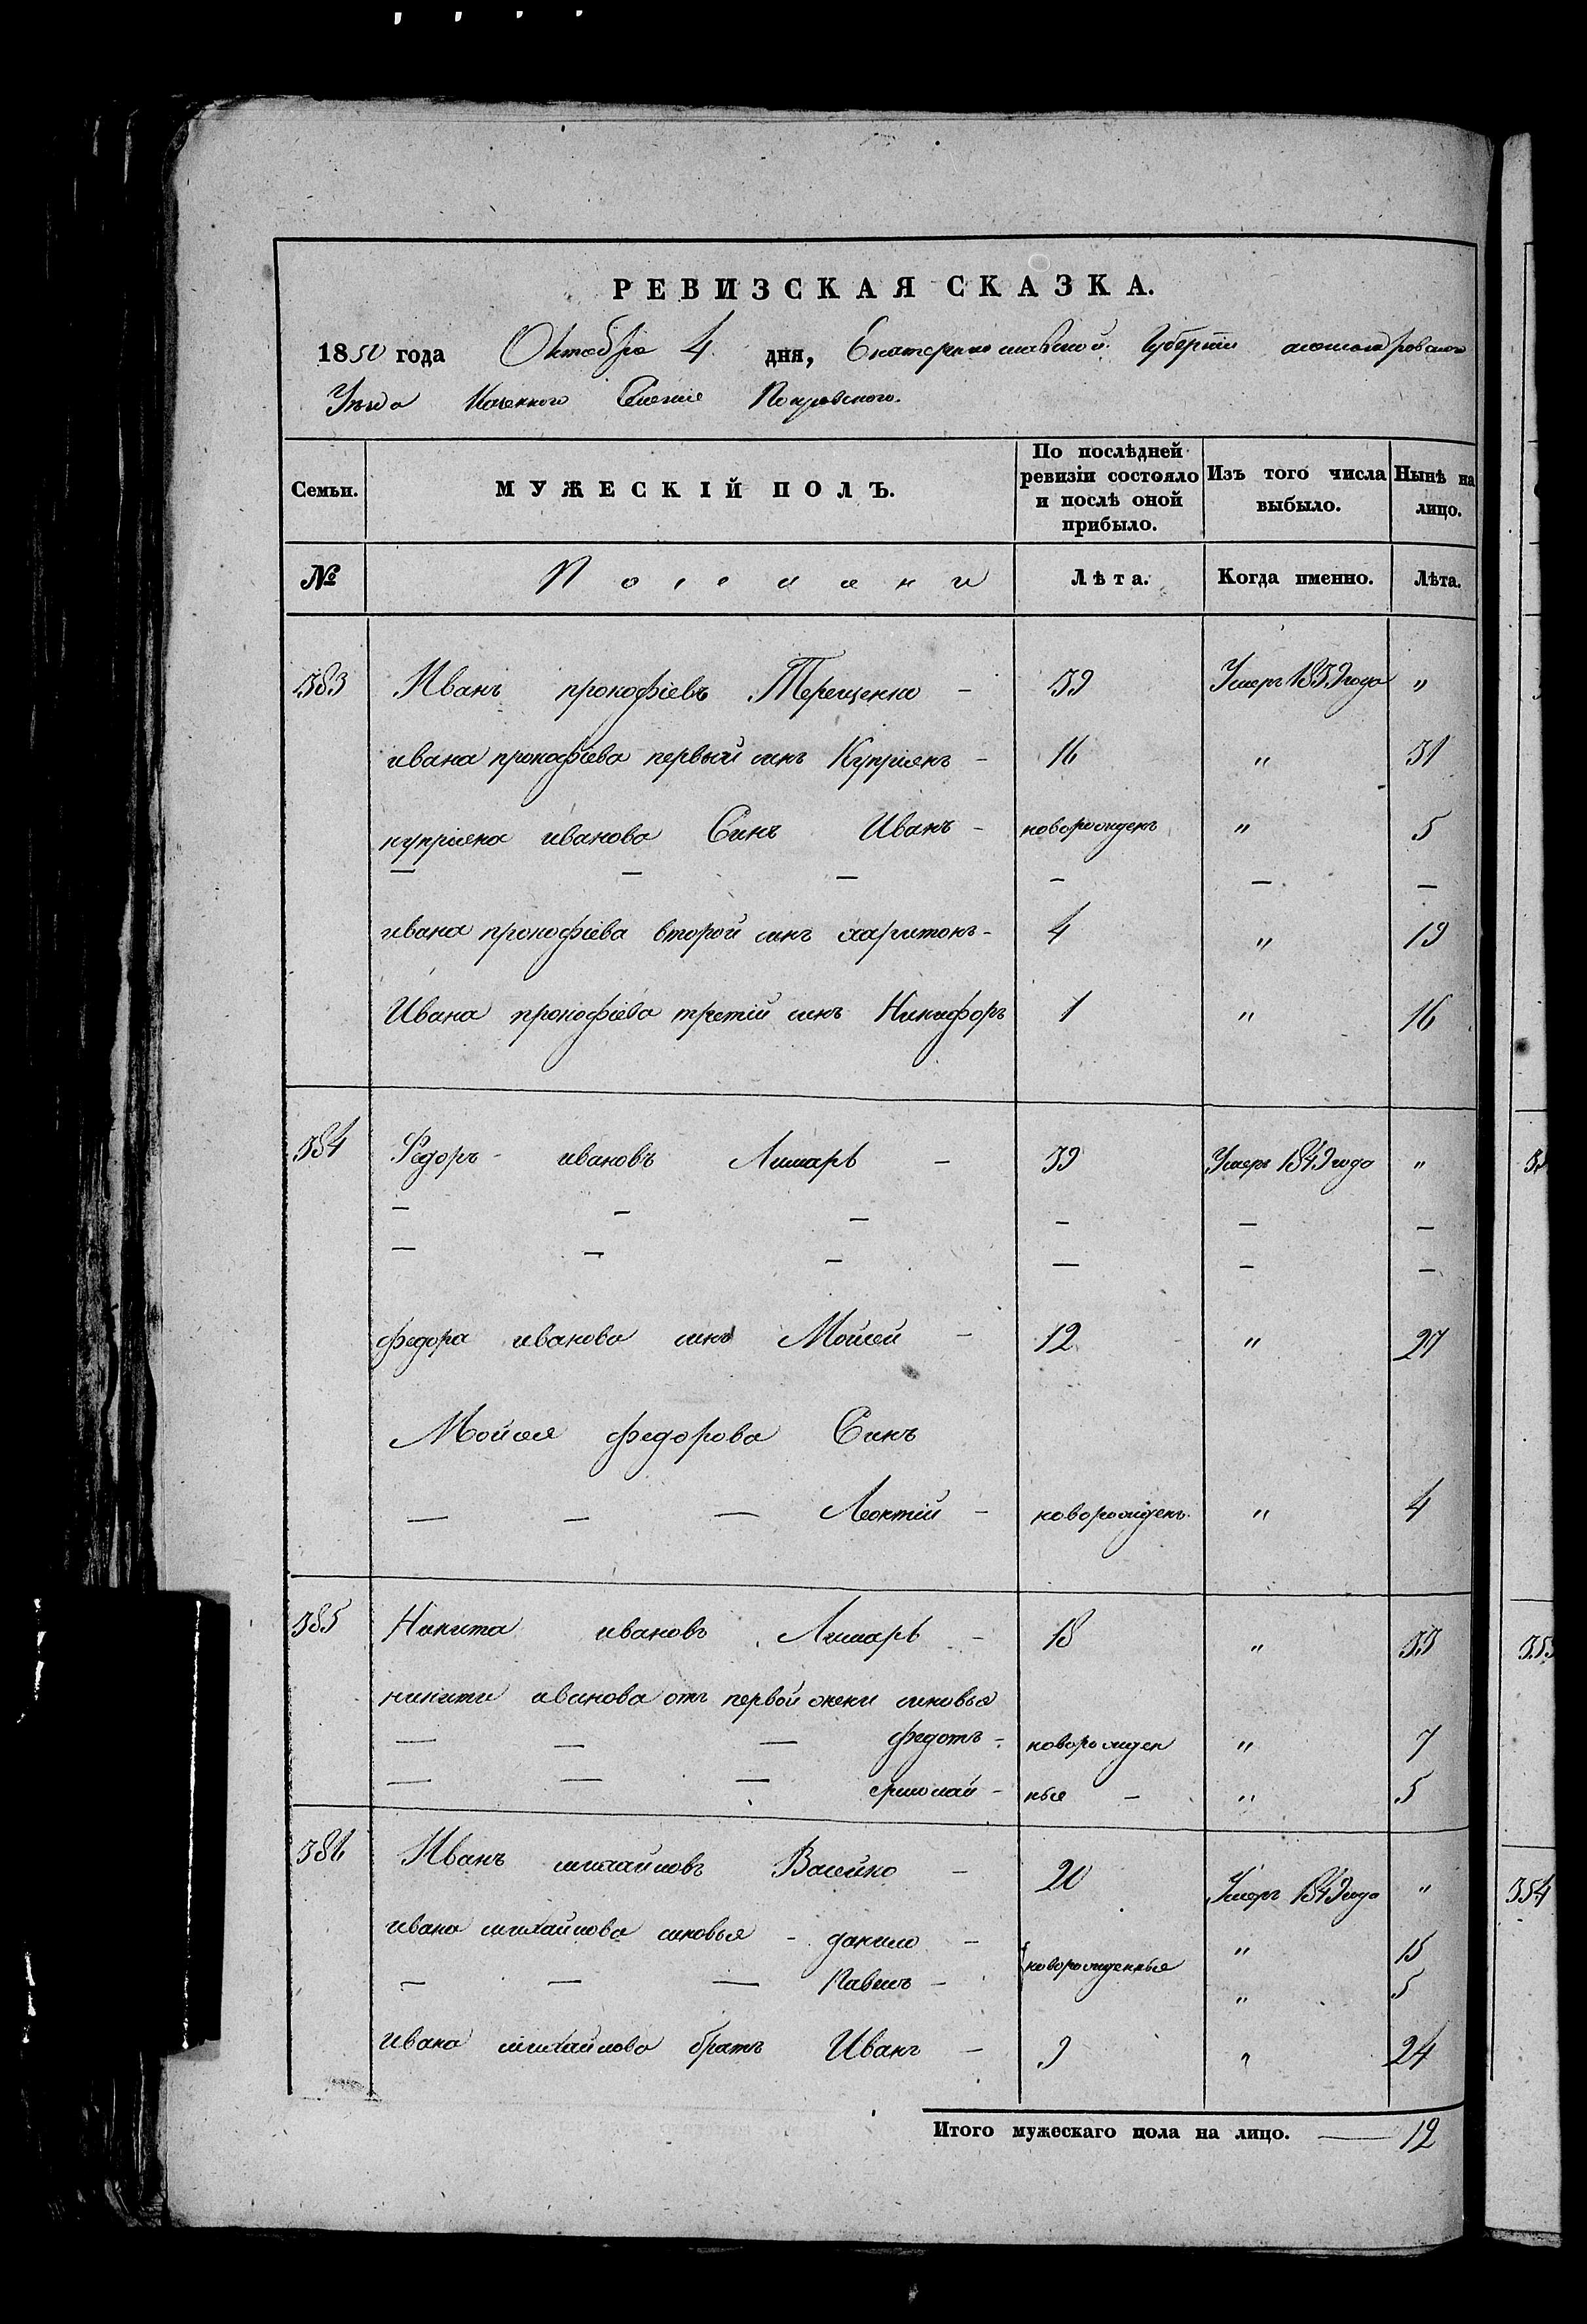 РЕВИЗСКАЯ СКАЗКА.
1850 года Октября 4 дня, Екатеринославской Губерніи александровского
Уезда Казенного Селенія Покровского.
Семьи. МУЖЕСКІЙ ПОЛЪ. По послѣдней ревизіи состояло и послѣ оной прибыло. Изъ того числа выбыло. Нынѣ на лицо.
№ Поселяни Лѣта. Когда именно. Лѣта.
383 Иванъ прокофіевъ Терещенко — 39 Умеръ 1839 года "
ивана прокофіева первый синъ Купріянъ — 16 " 31
купріяна иванова Синъ Иванъ — новорожденъ " 5
— — — — — —
ивана прокофіева второй синъ харитонъ — 4 " 19
Ивана прокофіева третій синъ Никифоръ 1 " 16
384 Федоръ ивановъ Лимарь — 39 Умеръ 1849 года "
— — — — — —
— — — — — —
федора иванова синъ Мойсей — 12 " 27
Мойсея федорова Синъ
— — — Леонтій — новорожденъ " 4
385 Никита ивановъ Лимарь — 18 " 33
никити иванова отъ первой жени синовья
— — — федотъ — новорожден " 7
— — — ермолай — ныя — " 5
386 Иванъ михайловъ Васейко — 20 Умеръ 1849 года "
ивана михайлова синовья — данило — новорожденныя " 15
— — — Павелъ — " 5
ивана михайлова братъ Иванъ — 9 " 24
Итого мужескаго пола на лицо. — 12
354